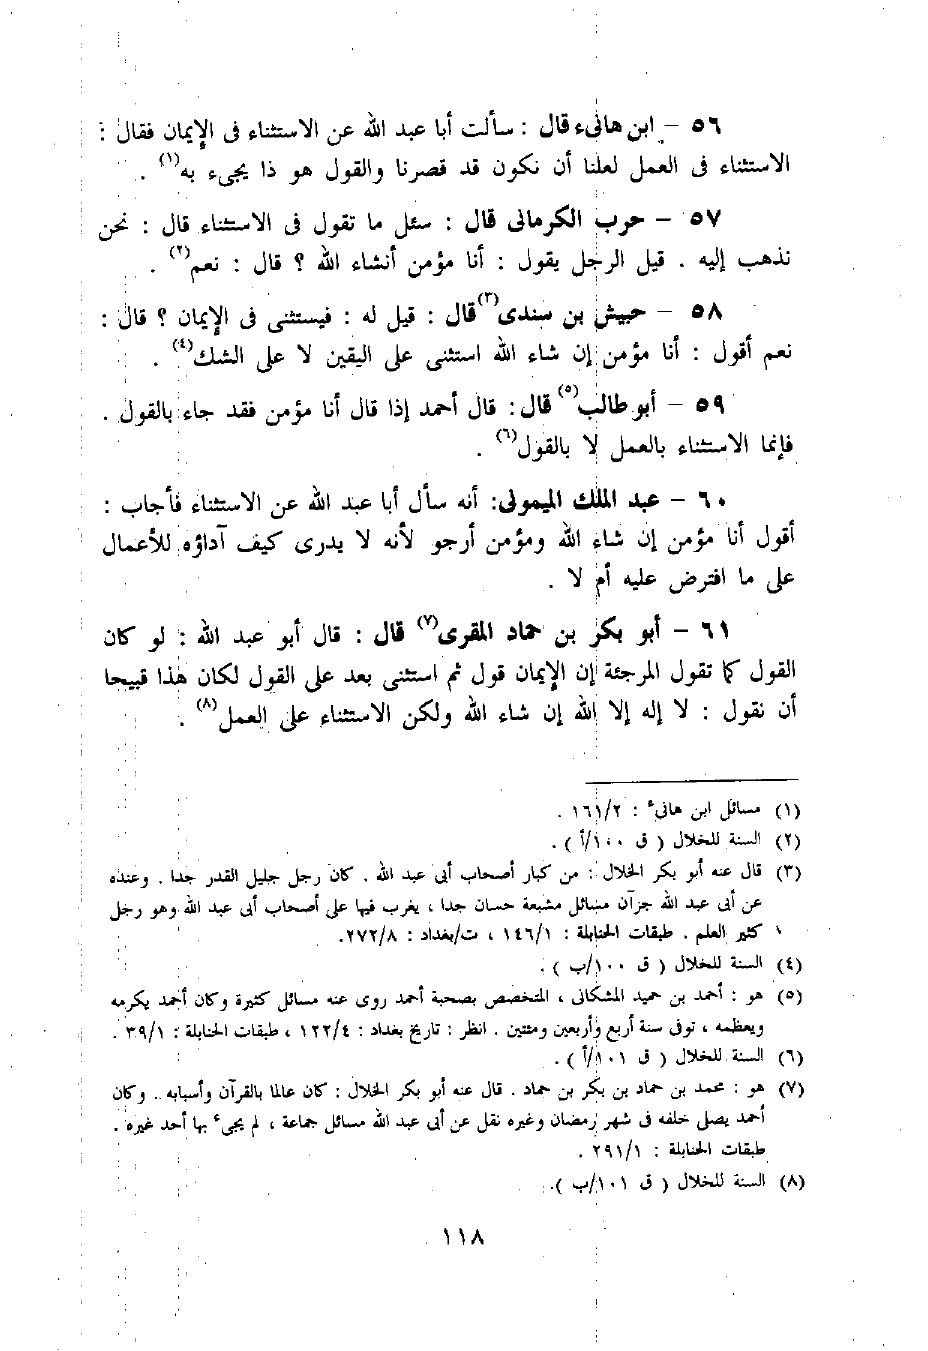 ٥٦ – ابن هانىء قال : سألت أبا عبد الله عن الاستثناء فى الإيمان فقال :
الاستثناء فى العمل لعلنا أن نكون قد قصرنا والقول هو ذا يجىء به(١) .
٥٧ – حرب الكرمانى قال : سئل ما تقول فى الاستثناء قال : نحن
نذهب إليه . قيل الرجل يقول : أنا مؤمن أنشاء الله ؟ قال : نعم(٢) .
٥٨ – حبيش بن سندى(٣) قال : قيل له : فيستثنى فى الإيمان ؟ قال :
نعم أقول : أنا مؤمن إن شاء الله استثنى على اليقين لا على الشك(٤) .
٥٩ – أبو طالب(٥) قال : قال أحمد إذا قال أنا مؤمن فقد جاء بالقول .
فإنما الاستثناء بالعمل لا بالقول(٦) .
٦٠ – عبد الملك الميمونى: أنه سأل أبا عبد الله عن الاستثناء فأجاب :
أقول أنا مؤمن إن شاء الله ومؤمن أرجو لأنه لا يدرى كيف آداؤه للأعمال
على ما افترض عليه أم لا .
٦١ – أبو بكر بن حماد المقرى(٧) قال : قال أبو عبد الله : لو كان
القول كما تقول المرجئة إن الإيمان قول ثم استثنى بعد على القول لكان هذا قبيحا
أن نقول : لا إله إلا الله إن شاء الله ولكن الاستثناء على العمل(٨) .
(١) مسائل ابن هانىء : ١٦١/٢ .
(٢) السنة للخلال ( ق ١٠٠/أ ) .
(٣) قال عنه أبو بكر الخلال : من كبار أصحاب أبى عبد الله . كان رجل جليل القدر جدا . وعنده
عن أبى عبد الله جزآن مسائل مشبعة حسان جدا ، يغرب فيها على أصحاب أبى عبد الله وهو رجل
كثير العلم . طبقات الحنابلة : ١٤٦/١ ، ت/بغداد : ٢٧٢/٨.
(٤) السنة للخلال ( ق ١٠٠/ب ) .
(٥) هو : أحمد بن حميد المشكانى ، المتخصص بصحبة أحمد روى عنه مسائل كثيرة وكان أحمد يكرمه
ويعظمه ، توفى سنة أربع وأربعين ومئتين . انظر : تاريخ بغداد : ١٢٢/٤ ، طبقات الحنابلة : ٣٩/١ .
(٦) السنة للخلال ( ق ١٠١/أ ) .
(٧) هو : محمد بن حماد بن بكر بن حماد . قال عنه أبو بكر الخلال : كان عالما بالقرآن وأسبابه .. وكان
أحمد يصلى خلفه فى شهر رمضان وغيره نقل عن أبى عبد الله مسائل جماعة ، لم يجىء بها أحد غيره .
طبقات الحنابلة : ٢٩١/١ .
(٨) السنة للخلال ( ق ١٠١/ب ).
١١٨